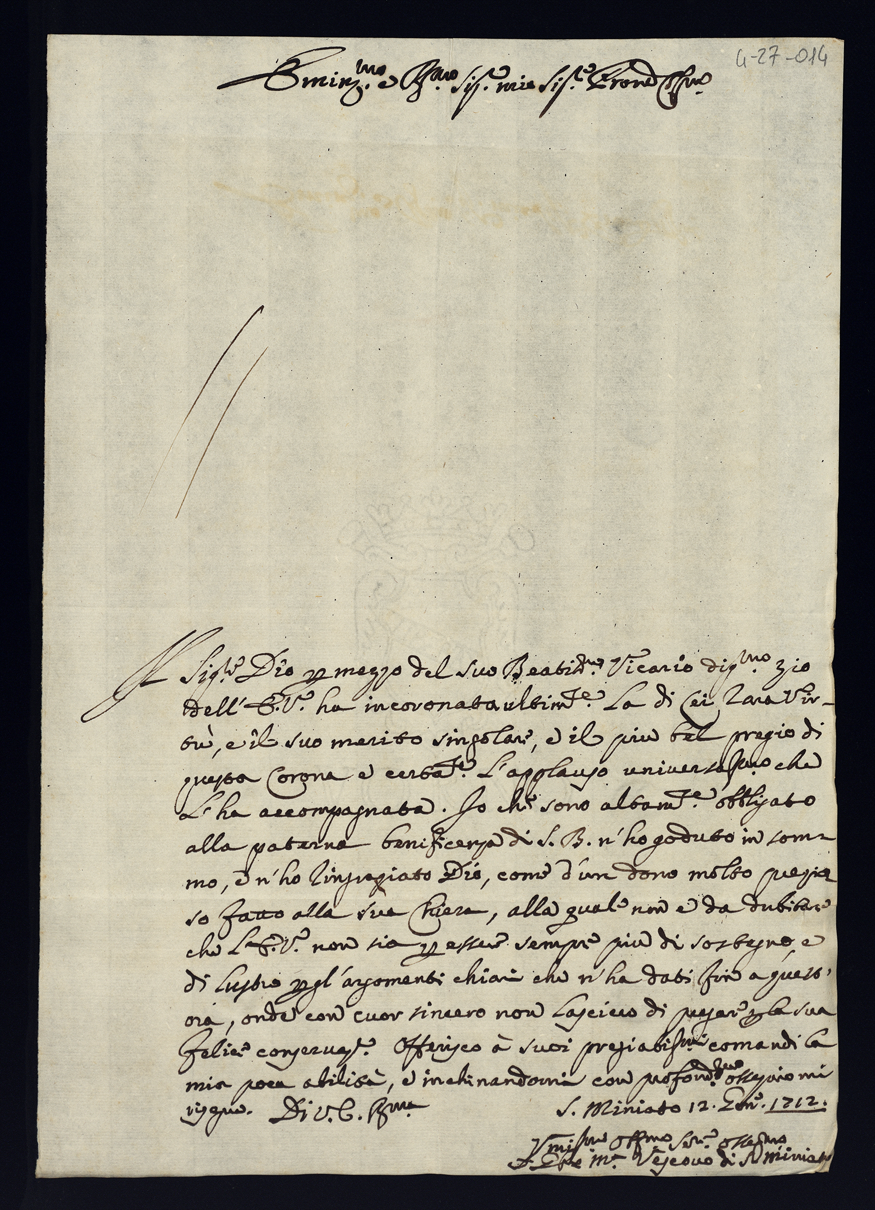 4-27-014
Emin.mo e R.mo Sig.r mio Sig.r Pron Col.mo
Il Sig.re Dio per mezzo del suo Beatis.mo Vicario dig.mo zio
dell'E.V. ha incoronata ultim.te la di Lei rara Vir-
tù, e il suo merito singolare, e il più bel pregio di
questa Corona è certa.te l'applauso universalis.mo che
l'ha accompagnata. Io che sono altam.te obbligato
alla paterna beneficenza di S. B. n'ho goduto in som-
mo, e n'ho ringraziato Dio, come d'un dono molto prezio
so fatto alla sua Chiesa, alla quale non è da dubitare
che l'E.V. non sia per essere sempre più di sostegno, e
di lustro per gl'argomenti chiari che n'ha dati fin a quest'
ora, onde con cuor sincero non lascierò di pregare per la sua
felice conservaz.e. Offerisco à suoi pregiatis.mi comandi la
mia poca abilità, e inchinandomi con profond.mo ossequio mi
rasegno. Di V. E. R.ma S. Miniato 12. Gen.o 1712.
Umilis.mo Obblig.mo Ser.re osseq.mo
Vescovo di S. Miniato